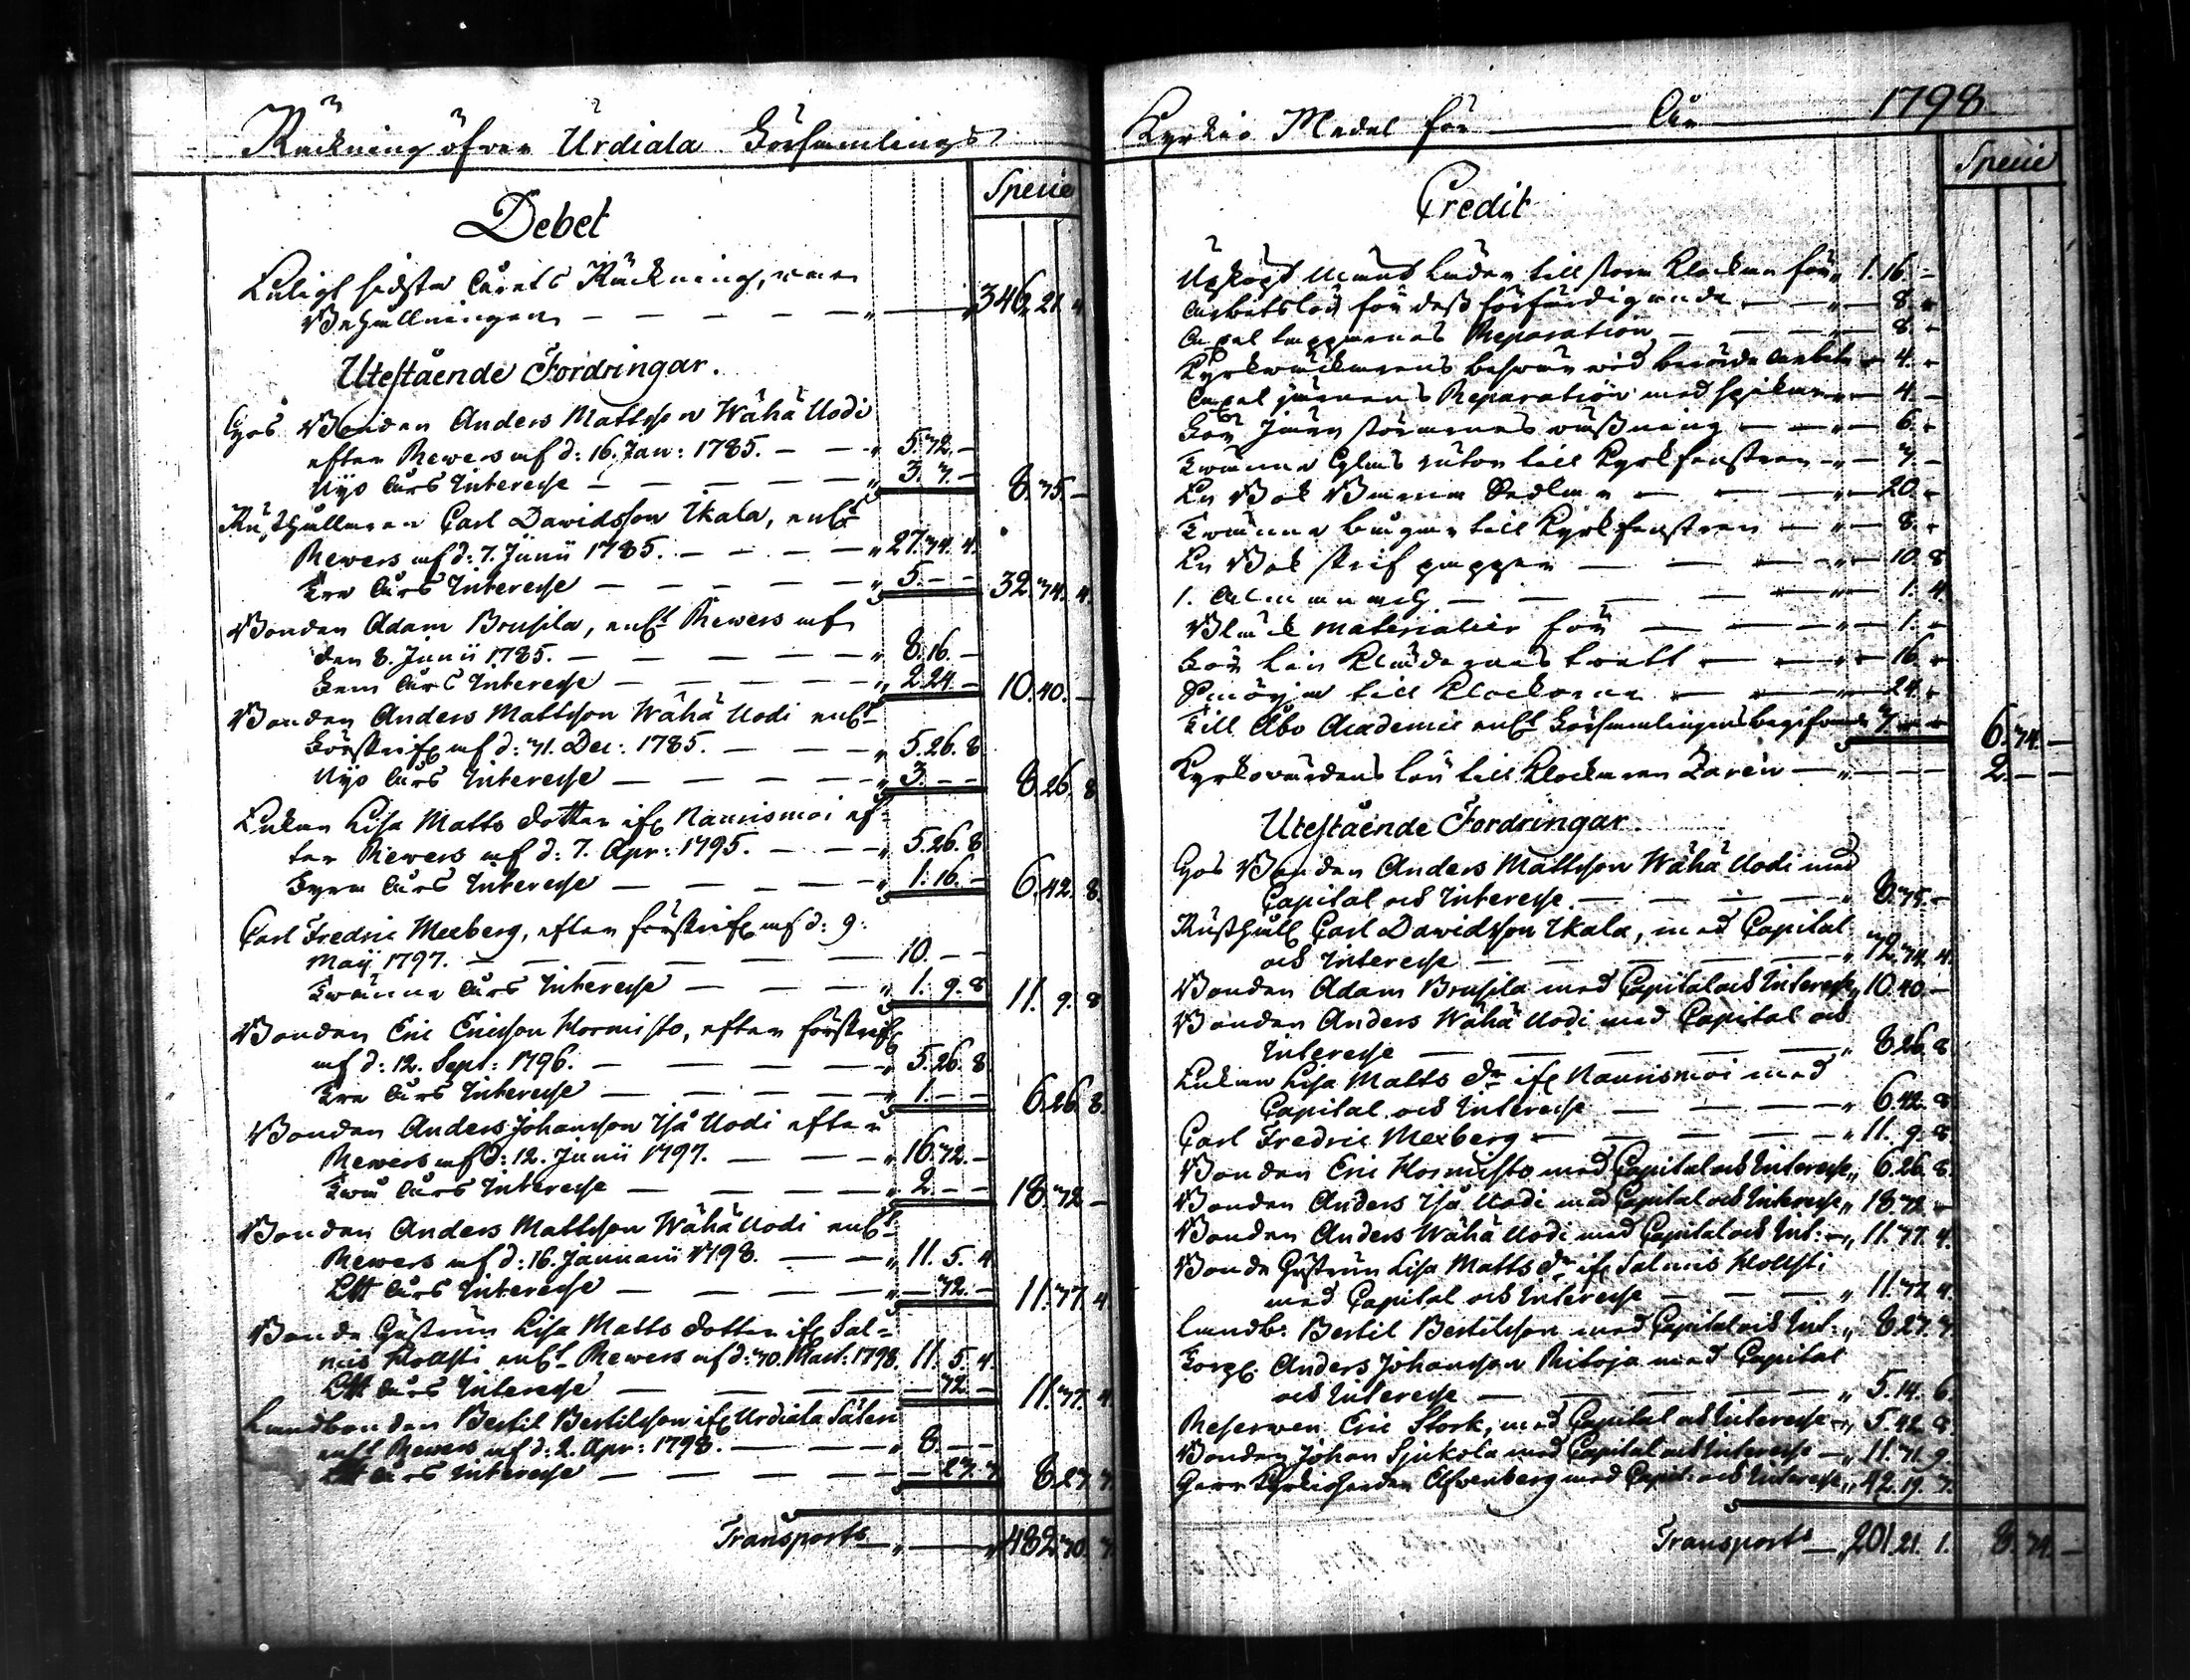 Räckning öfver Urdiala Församlings
Specie
Debet
Enligt sidsta Årets Räckning, war
Behållningen — — — — — 346. 21. "
Utestående Fordringar.
Hos Bonden Anders Mattsson Wähä Uodi
efter Revers af d: 16. Jan: 1785. — — " 5. 32. —
Nijo Års Interesse — — — — " 3. 3. — 8. 35. —
Rusthållaren Carl Davidsson Ikala, enl:t
Revers af d: 7. Junii 1785. — — — " 27. 34. 4.
Tre Års Interesse — — — — — " 5. — — 32. 34. 4.
Bonden Adam Brusila, enl:t Revers af
den 8. Junii 1785. — — — — — " 8. 16. —
Fem Års Interesse — — — — " 2. 24. — 10. 40. —
Bonden Anders Mattsson Wähä Uodi enl:t
Förskrifg af d: 31. Dec: 1785. — — — " 5. 26. 8
Nijo Års Interesse — — — — " 3. — — 8. 26. 8
Enkan Lisa Matts dotter ifr Naurismoi ef-
ter Revers af d: 7. Apr: 1795. — — — " 5. 26. 8
Fyra Års Interesse — — — — " 1. 16. — 6. 42. 8.
Carl Fredric Mexberg, efter förskrifg af d: 9.
Maij 1797. — — — — — — 10. — —
Twänne Års Interesse — — — " 1. 9. 8 11. 9. 8
Bonden Eric Ericsson Hormisto, efter förskrifg
af d: 12. Sept: 1796. — — — — " 5. 26. 8
Tre Års Interesse — — — — " 1. — — 6. 26. 8.
Bonden Anders Johansson Iso Uodi efter
Revers af d: 12. Junii 1797. — — — " 16. 32. —
Twå Års Interesse — — — — " 2. — — 18. 32 —
Bonden Anders Mattsson Wähä Uodi enl:t
Revers af d: 16. Januarii 1798. — — " 11. 5. 4
Ett Års Interesse — — — — " — 32. — 11. 37. 4.
Bonde Hustrun Lisa Matts dotter ifr Sal-
mis Hollsti enl:t Revers af d: 30. Mart: 1798. 11. 5. 4.
Ett Års Interesse — — — — — 32 — 11. 37. 4
Landbonden Bertil Bertilsson ifr Urdiala Säteri
enl:t Revers af d: 2. Apr: 1798. — — — " 8. — —
Ett Års Interesse — — — — — — 27. 3 8. 27 3
Transport — " — " 482. 30. 3
Kyrkio Medel för — År — 1798.
Specie
Credit
Upköpt läder till stora Klockan för " 1. 16 —
Arbetslön för dess förfärdigande — — " — 8. "
Axel tapparnes Reparation — — — " — 8. "
Kyrkwäcktarens beswär wid berörde arbete — 4. "
Axel jernens Reparation med spikar — 4. —
För Jern — — " — 6. "
Twänne Glas rutor till Kyrkfenstren — " — 3. —
En Bok Banco Sedlar — — — " — 20. "
Twänne bugar till Kyrkfenstren — — " — 8. "
En Bok skrif papper — — — " — 10. 8
1. Almanach — — — — " — 1. 4.
Bläck materialier för — — — " — 1. "
För lin Klädernas twätt — — — " — 16 "
Smörja till Klockorna — — — — 24. "
Till Åbo Academie enl:t Församlingens begifvande 3. " " 6. 34. —
Kyrkovärdens lön till Klockaren Zarén — " — — — 2. — —
Utestående Fordringar.
Hos Bonden Anders Mattsson Wähä Uodi med
Capital och Interesse. — — — — " 8. 35. —
Rusthåll: Carl Davidsson Ikala, med Capital
och Interesse — — — — — " 32. 34. 4.
Bonden Adam Brusila med Capital och Interesse " 10. 40. —
Bonden Anders Wähä Uodi med Capital och
Interesse — — — — — " 8. 26. 8
Enkan Lisa Matts dr ifr Naurismoi med
Capital och Interesse — — — — " 6. 42. 8
Carl Fredric Mexberg — — — — — " 11. 9. 8
Bonden Eric Hormisto med Capital och Interesse " 6. 26. 8.
Bonden Anders Iso Uodi med Capital och Interesse " 18. 32. "
Bonden Anders Wähä Uodi med Capital och Int: — " 11. 37. 4.
Bonde Hustrun Lisa Matts dr ifr Salmis Hollsti
med Capital och Interesse — — — " 11. 37. 4.
Landb: Bertil Bertilsson med Capital och Int: " 8. 27. 3.
Torp: Anders Johansson Ritoja med Capital
och Interesse — — — — — " 5. 14. 6.
Reserven Eric Stork, med Capital och Interesse — " 5. 42. 8
Bonden Johan Sjukola med Capital och Interesse — " 11. 31. 9.
Herr Kyrkioherden Alfvenberg med Capit: och Interesse " 42. 19. 3.
Transport — " 201. 21. 1. 8. 34. —